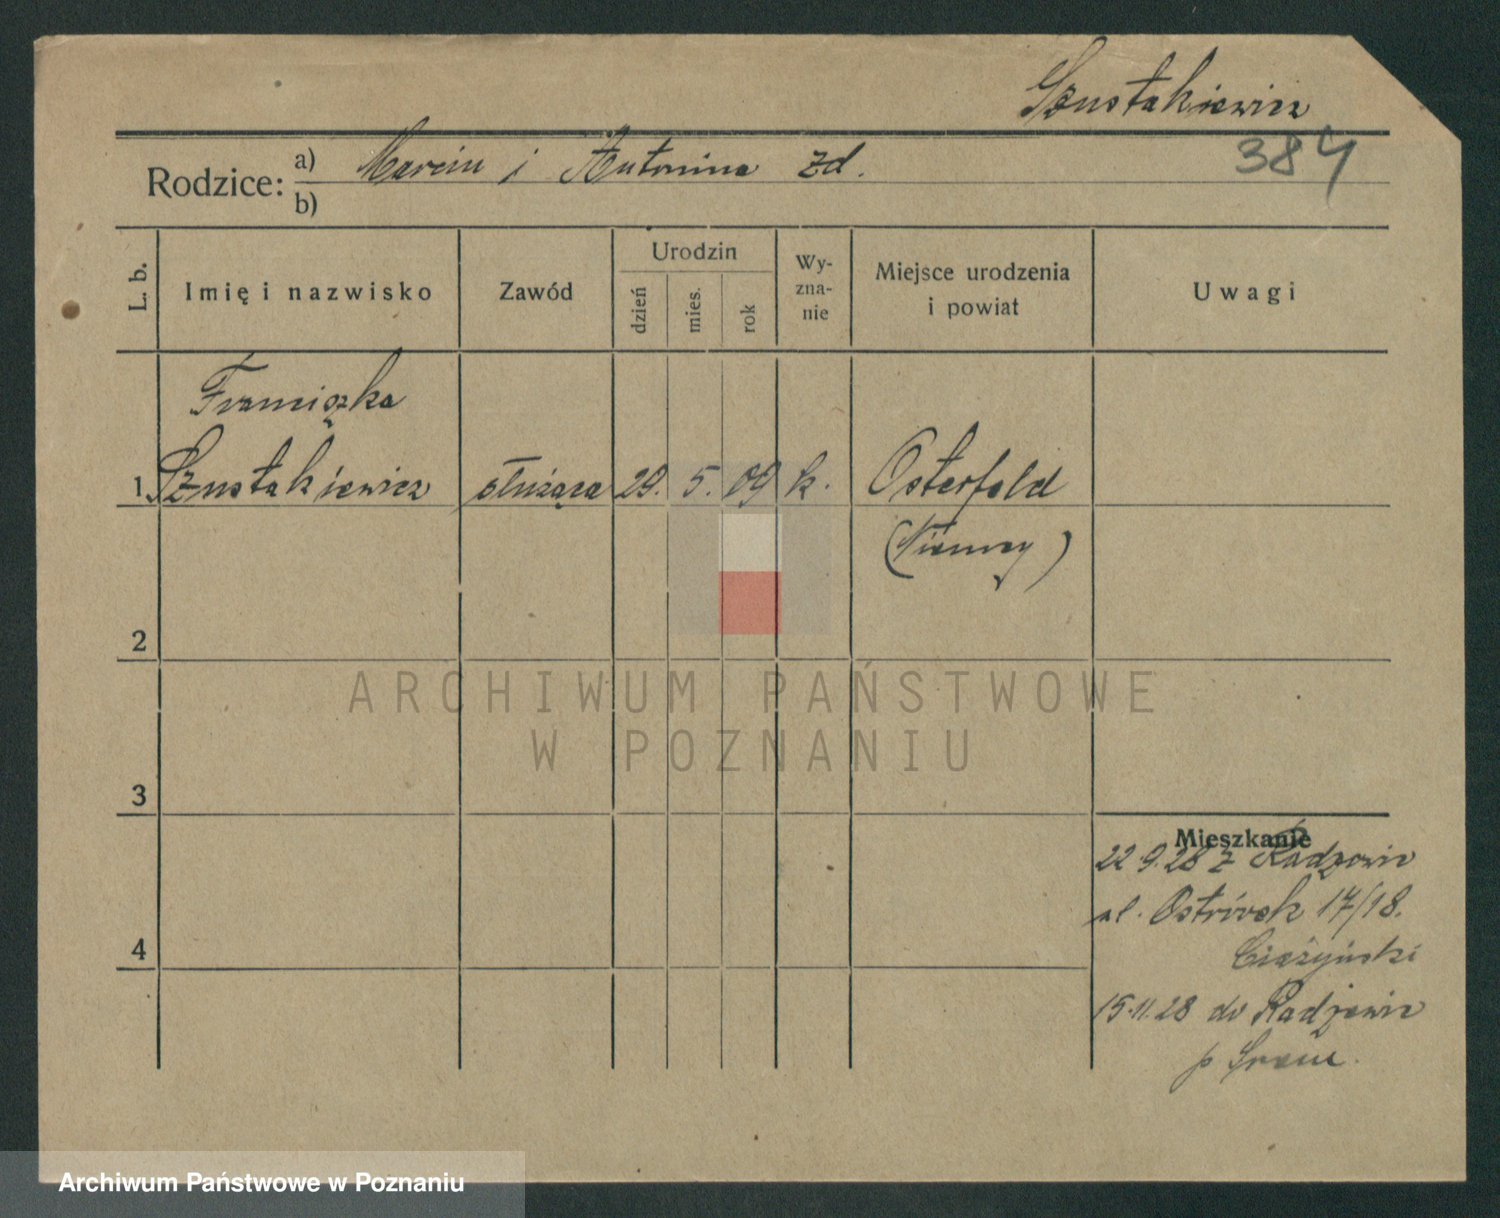 Szustakiewicz
384
Rodzice: a) Marcin i Antonina zd.
b)
L. b.
Imię i nazwisko
Zawód
Urodzin
dzień
mies.
rok
Wy-
zna-
nie
Miejsce urodzenia
i powiat
Uwagi
Franciszka
1 Szustakiewicz służąca 29. 5. 09 k. Osterfeld
(Niemcy)
2
3
4
Mieszkanie
22.9.28 z Radzewic
ul. Ostrówek 17/18.
Ciężyński
15.11.28 do Radzewic
p Śrem.
ARCHIWUM PAŃSTWOWE
W POZNANIU
Archiwum Państwowe w Poznaniu